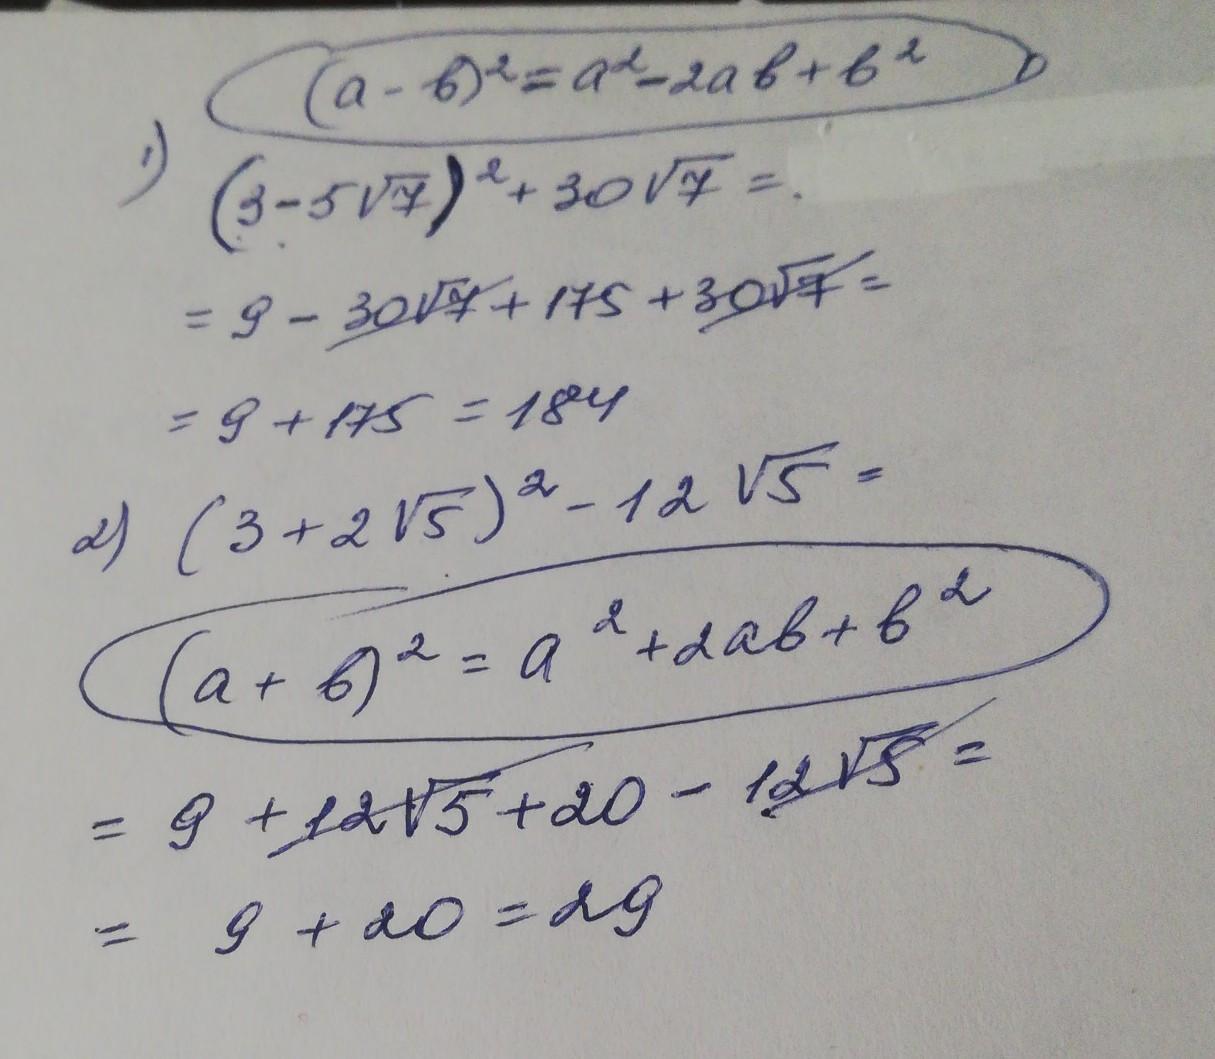 (a - b)² = a² - 2ab + b²
1) (3 - 5√7)² + 30√7 =
= 9 - 30√7 + 175 + 30√7 =
= 9 + 175 = 184
2) (3 + 2√5)² - 12√5 =
(a + b)² = a² + 2ab + b²
= 9 + 12√5 + 20 - 12√5 =
= 9 + 20 = 29